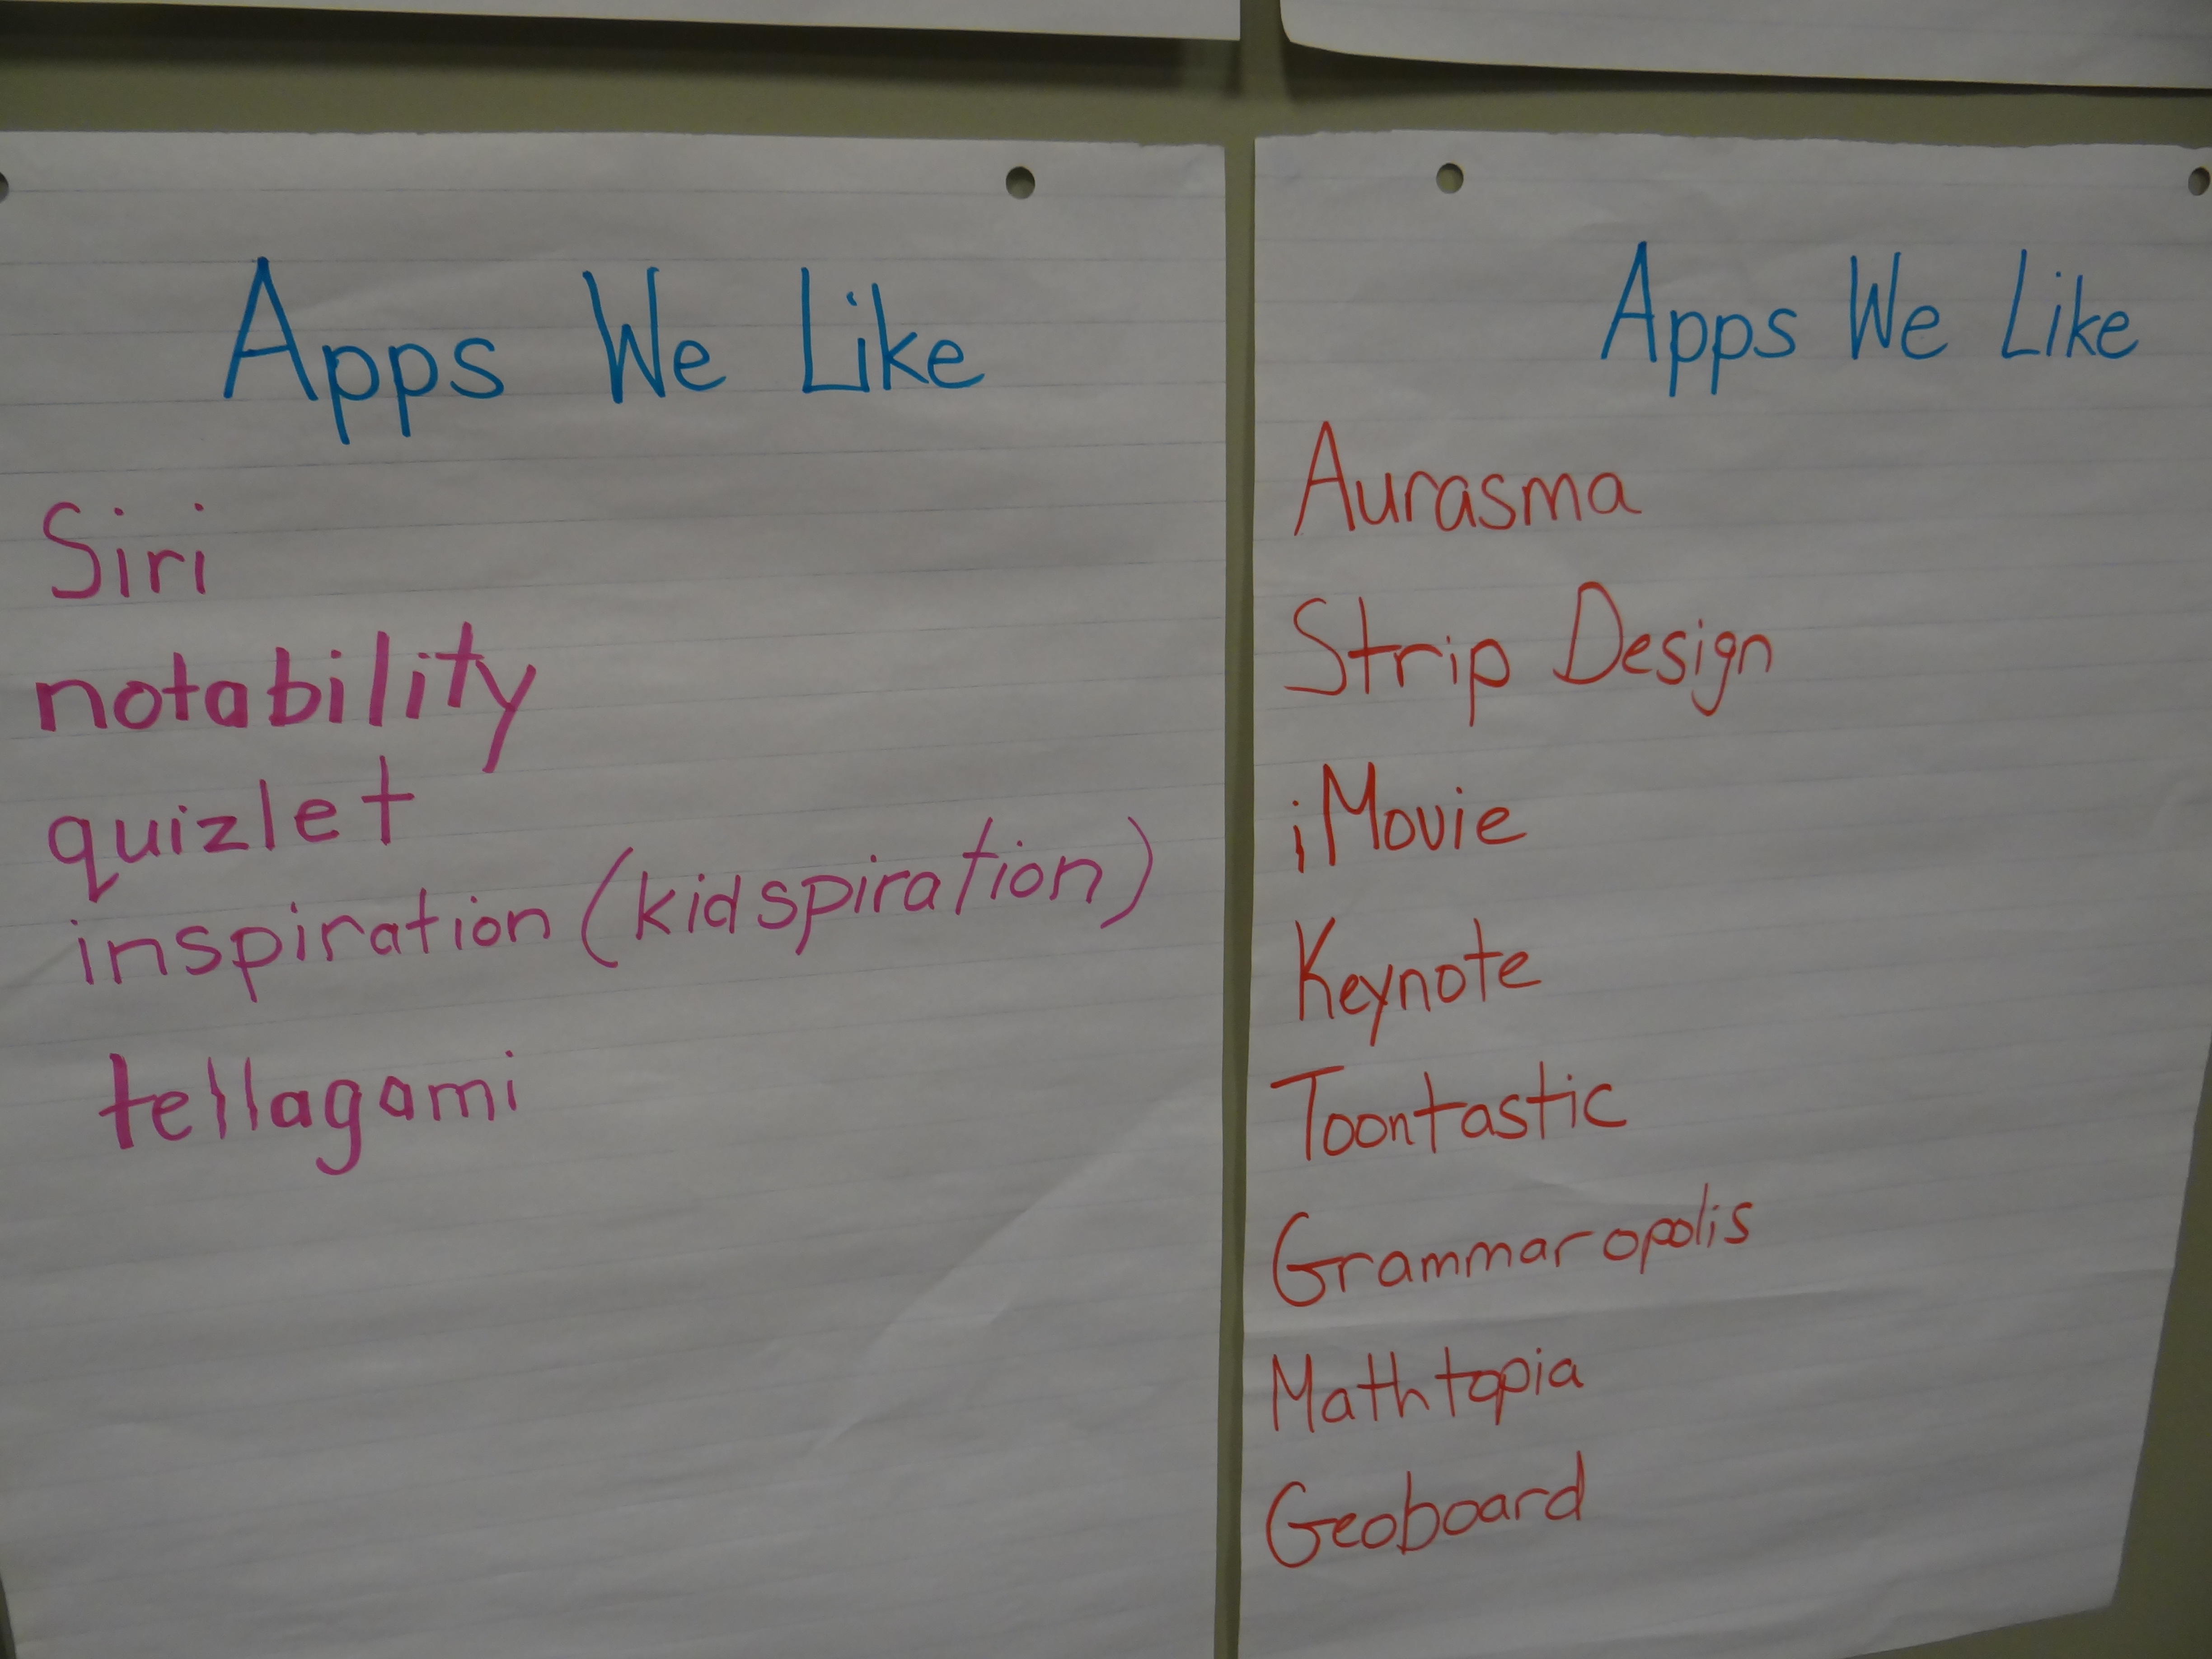 Apps We Like
Siri
notability
quizlet
inspiration (kidspiration)
tellagami
Apps We Like
Aurasma
Strip Design
iMovie
Keynote
Toontastic
Grammaropolis
Mathtopia
Geoboard